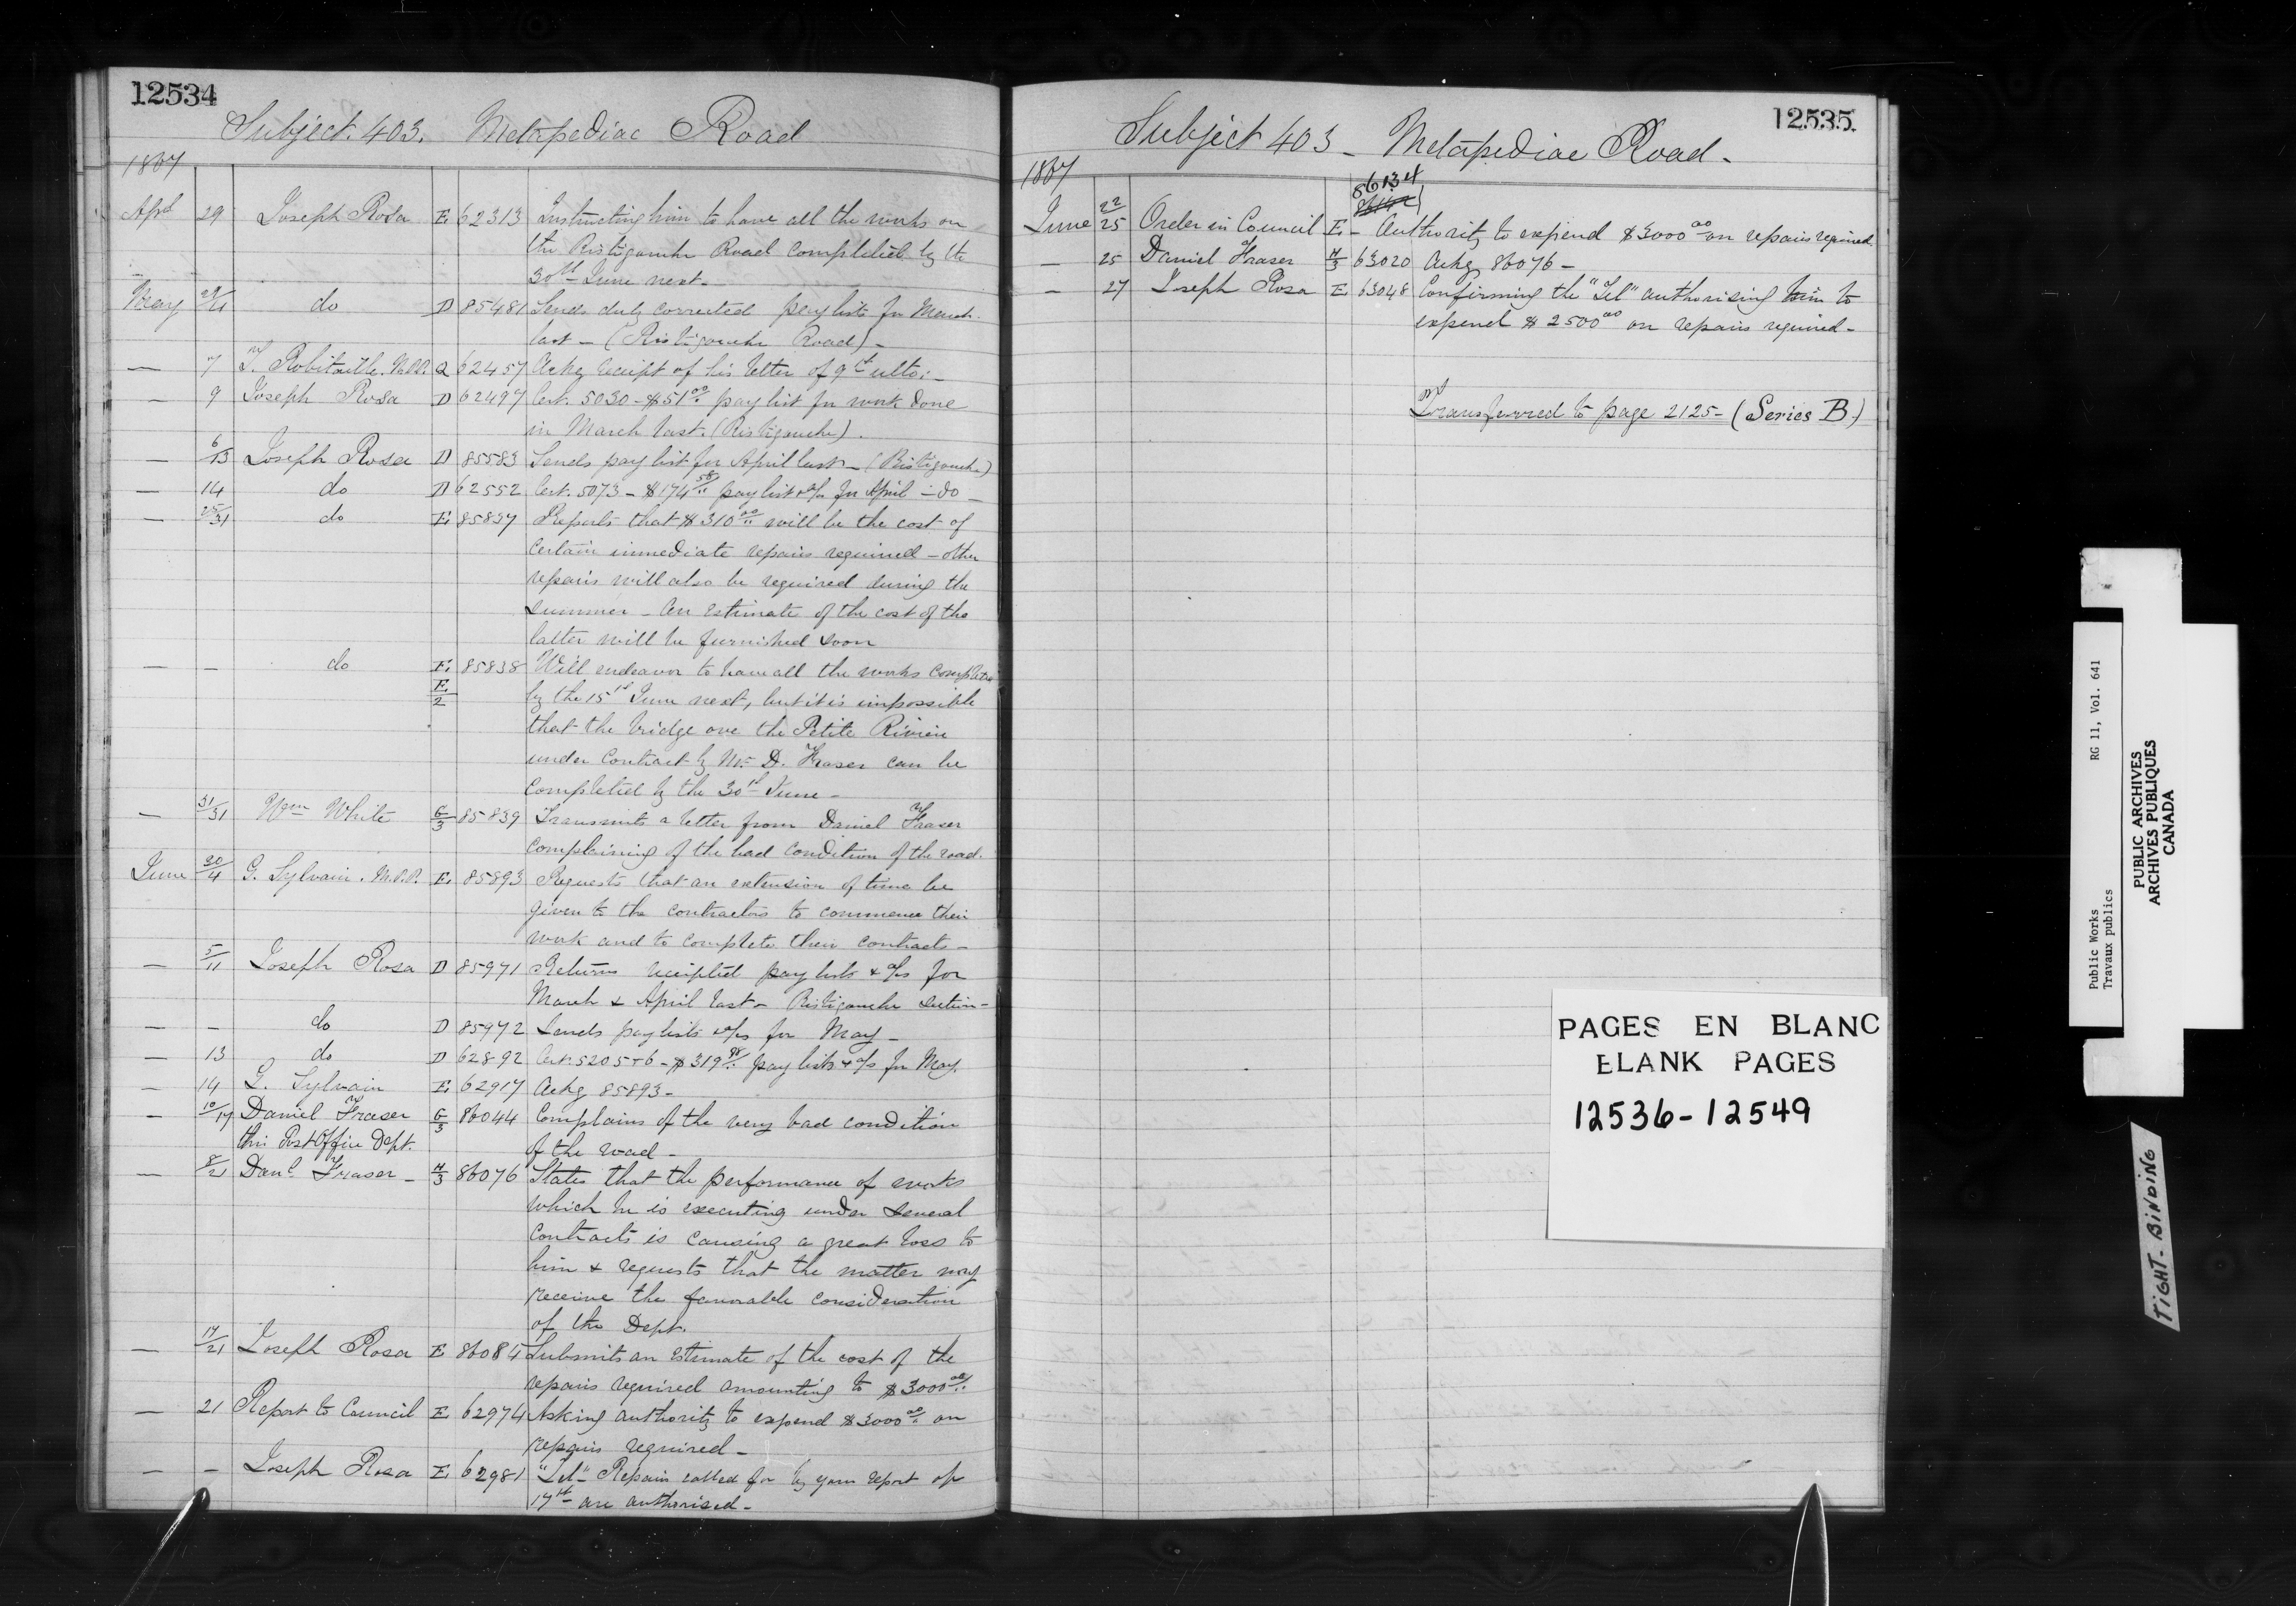 12534
Subject 403. Metapediac Road
1867
Apl 29 Joseph Rosa E 62313 Instructing him to have all the works on
the Ristigouche Road completed by the
30th June next.
May 29/4 do D 85481 Sends duly corrected pay lists for March
last - (Ristigouche Road) -
— 7 T. Robitaille. M.P.P. Q 62457 Ackg receipt of his letter of 9th ulto; -
— 9 Joseph Rosa D 62497 Cert. 5030 - $51 00/.. pay list for work done
in March last. (Ristigouche).
— 6/13 Joseph Rosa D 85583 Sends pay list for April last - (Ristigouche)
— 14 do D 62552 Cert. 5073 - $174 58/.. pay list & a/c for April - do -
— 25/31 do E 85837 Reports that $310 00/.. will be the cost of
certain immediate repairs required - other
repairs will also be required during the
summer - An estimate of the cost of the
latter will be furnished soon
— — do E 85838 Will endeavor to have all the works completed
E/2 by the 15th June next, but it is impossible
that the bridge over the Petite Rivière
under contract by Mr. D. Fraser can be
completed by the 30th June -
— 31/31 Wm White G/3 85839 Transmits a letter from Daniel Fraser
complaining of the bad condition of the road.
June 30/4 G. Sylvain. M.P.P. E 85893 Requests that an extension of time be
given to the contractors to commence their
work and to complete their contracts -
— 5/11 Joseph Rosa D 85971 Returns receipted pay lists & a/cs for
March & April last - Ristigouche section -
— — do D 85972 Sends pay lists & a/cs for May -
— 13 do D 62892 Cert. 5205 + 6 - $319 98/.. pay lists & a/c for May.
— 14 G. Sylvain E 62917 Ackg 85893 -
— 10/17 Daniel Fraser G/3 86044 Complains of the very bad condition
thro' Post Office Dept. of the road -
— 8/21 Danl. Fraser - H/3 86076 States that the performance of works
which he is executing under several
contracts is causing a great loss to
him & requests that the matter may
receive the favorable consideration
of the Dept.
— 17/21 Joseph Rosa E 86084 Submits an estimate of the cost of the
repairs required amounting to $3000 00/..
— 21 Report to Council E 62974 Asking authority to expend $3000 00/.. on
repairs required -
— — Joseph Rosa E 62981 "Tel" - Repairs called for by your report of
17th are authorised -
12535
Subject 403 - Metapediac Road -
1867
86134
June 22/25 Order in Council E - Authority to expend $3000 00 on repairs required.
— 25 Daniel Fraser H/3 63020 Ackg 86076 -
— 27 Joseph Rosa E 63048 Confirming the "Tel" authorising him to
expend $2500 00 on repairs required -
Transferred to page 2125 - (Series B.)
PAGES EN BLANC
BLANK PAGES
12536-12549
Public Works
Travaux publics
RG 11, Vol. 641
PUBLIC ARCHIVES
ARCHIVES PUBLIQUES
CANADA
TIGHT BINDING